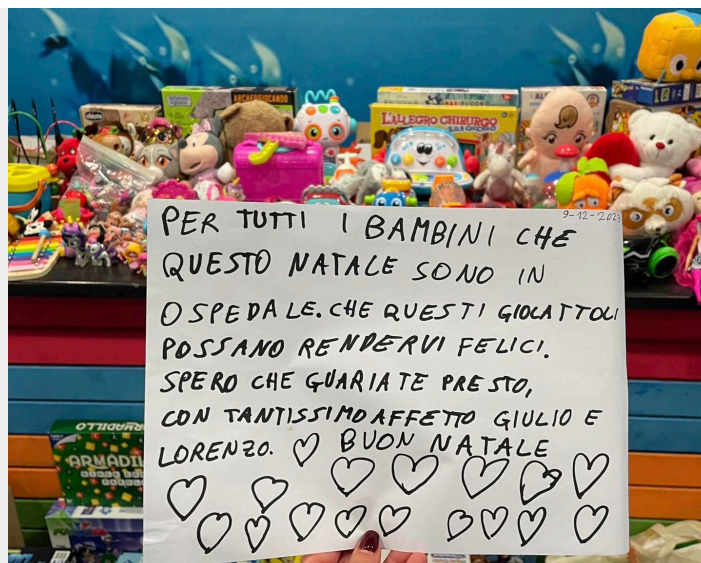 ARCHEOGIOCANDO
L'ALLEGRO CHIRURGO
9-12-2023
PER TUTTI I BAMBINI CHE
QUESTO NATALE SONO IN
OSPEDALE. CHE QUESTI GIOCATTOLI
POSSANO RENDERVI FELICI.
SPERO CHE GUARIATE PRESTO,
CON TANTISSIMO AFFETTO GIULIO E
LORENZO. ♡ BUON NATALE
ARMADILLO
ARMADI